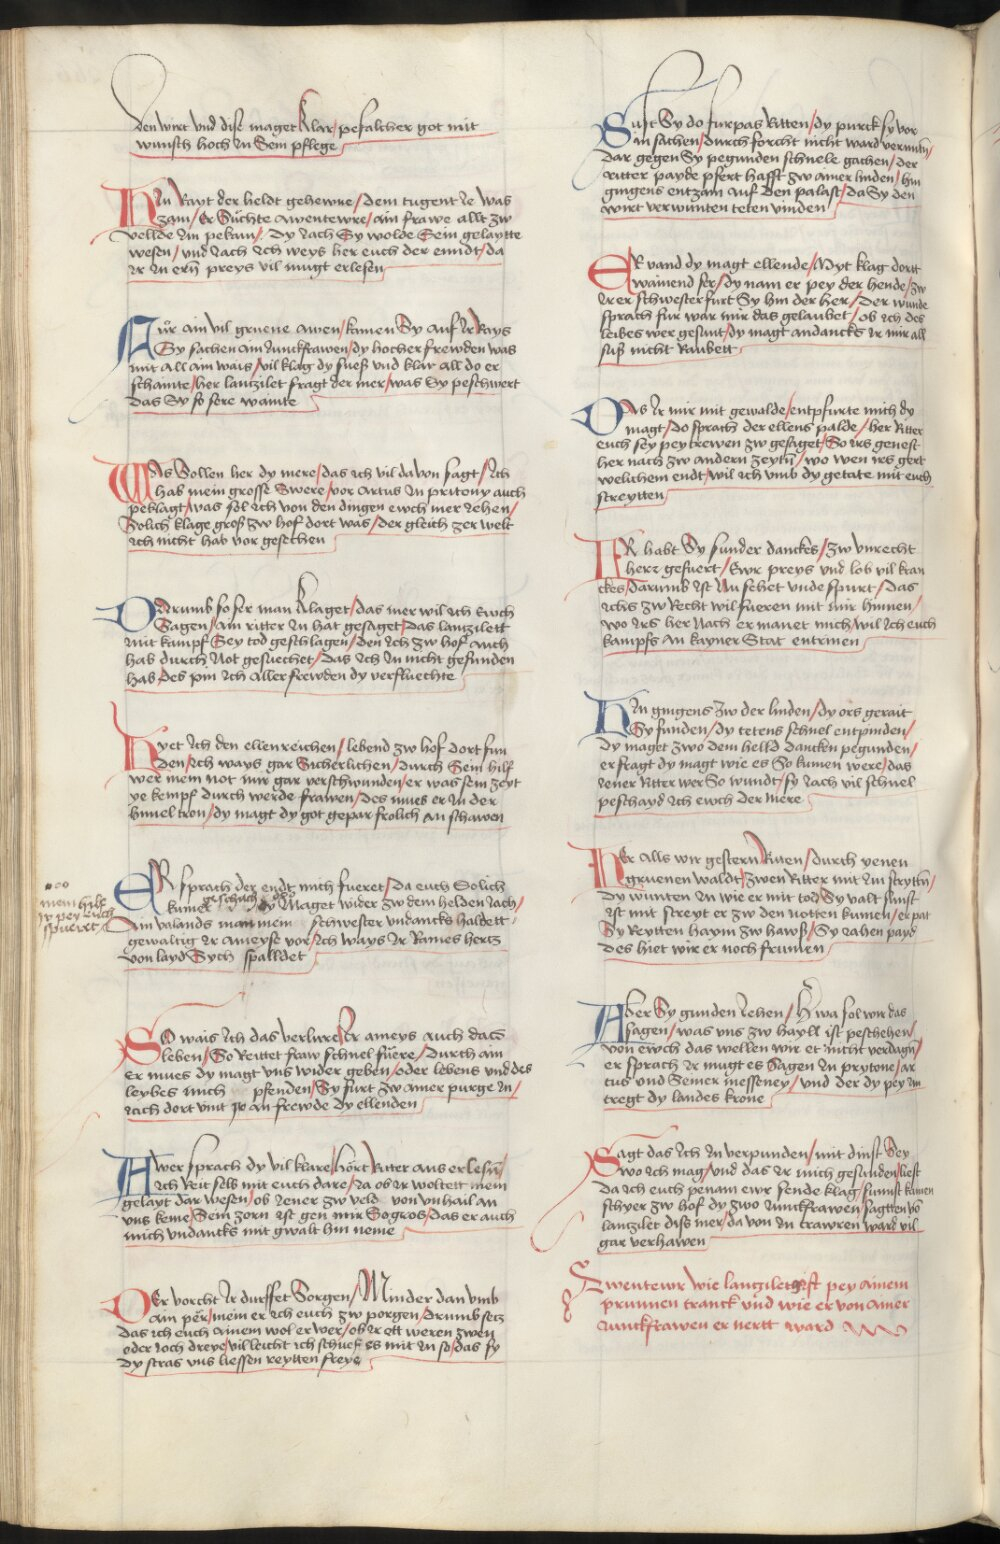 den wirt vnd dise maget klar/pefalcher got mit
wunsch hoch in Sein pflege
Hin Rayt der heldt gehewne/dem tugent ie was
zam/er Suchte awentewre/ain frawe allt zw
vellde im pekam/. Dy iach Sy wolde Sein gelaytte
wesen/vnd iach ich weys her euch der enndt/da
ir in ern preys vil mugt erlesen
Fuͤr ain vil gruene awen/kamen Sy auf ir Rays
Sy sachen ain iunckfrawen/dy hocher frewden was
mit all ain wais/vil klag dy sueß vnd klar all do er
schainte/her lanzilet fragt der mer/was Sy peschwert
das Sy so sere wainte
WAs Sollen her dy mere/das ich vil da von sagt/Ich
hab mein grosse Swere/vor artus in pritony auch
peklagt/was sol ich von den dingen ewch mer iehen/
Solich klage groß zw hof dort was/der gleich zer welt
ich nicht hab vor gesechen
DArumb so ser man klaget/das mer wil ich Ewch
Sagen/ain ritter in hat gesaget/das lanzilett
mit kampf Sey tod geschlagen/den ich zw hof auch
hab durch not gesuechet/das ich in nicht gefunden
hab/des pin ich aller frewden dy verfluechte
Hyet ich den ellenreichen/lebend zw hof dort fun
den/ich ways gar Sicherlichen/durch Sein hilf
wer mein not mir gar verschwunden/er was sein zeyt
ye kempf durch werde frawen/des mues er in der
himel tron/dy magt dy got gepar frolich an schawen
ER sprach der endt mich fueret/da euch Solich
kumer geschach/ob dy Maget wider zw dem helden iach/
mein hilf
ir pey euch
spueret/
Ain valands man mein schwester vndancks haldett
gewaltig ir ameyse vor/ich ways ir Raines hertz
von layd Sych spalldet
SO wais ich das verlire/Er ameys auch daco
leben/So Reittet fraw schnel fuere/Durch ain
er mues dy magt vns wider geben/oder lebens vnd des
leybes mich pfenden/Sy furt zw ainer purge in/
iach dort vint ir an frewde dy ellenden
AWer sprach dy vil klare/hort Ritter aus erlesn/
ich Reit selb mit euch dare/ia ob ir woltett mein
gelayt dar wesen/ob iener zw veld von vnhail an
vns keme/Sein zorn ist gen mir Sogros/das er auch
mich vndancks mit gwalt hin neme
DEr vorcht ir durffet Sorgen/Minder dan vmb
ain per/mein er ich euch zw porgen/drumb setz
das ich euch ainem wol er wer/ob ir ett weren zwen
oder ioch dreye/vil leicht ich schuef es mit in so/das sy
dy stras vns liessen reytten freye
Sust Sy do furpas Ritten/dy purck sy vor
in sachen/durch forcht nicht ward vermitn/
Dar gegen Sy pegunden schnele gachen/der
ritter payde pfert hafft zw ainer linden/hin
gingens entzam auf den palast/da Sy den
wirt verwunten teten vinden
ER vand dy magt ellende/Myt klag dortt
wainend ser/dy nam er pey der hende/zw
irer schwester furt Sy hin der her/Der wunde
sprach fur war mir das gelaubet/ob ich des
leibes wer gesunt/dy magt andancks ir mir all
sust nicht Raubett
DAs ir mir mit gewalde/entpfurte mich dy
magt/do sprach der ellens palde/her Ritter
euch sey pey trewen zw gesaget/So irs genest
her nach zw andern zeytn/wo wen irs gert
welichem endt/wil ich vmb dy getate mit euch
streytten
IR habt Sy sunder danckes/zw vnrecht
herz gefuert/Ewr preys vnd lob vil kran
ckes/darumb ist An sehet vnde spurt/Das
ichs zw Recht wil fueren mit mir hinnen/
wo irs her Nach er manet mich/wil ich euch
kampfs An kayner Stat entrinen
HIn gingens zw der linden/dy ors gerait
Sy funden/dy tetens schnel entpinden/
dy maget zwo dem helld dancken pegunden/
er fragt dy magt wie es So kumen were/das
iener Ritter wer So wundt/sy iach vil schnel
peschayd ich ewch der mere
HEr alls wir gestern Riten/durch yenen
gruenen waldt/zwen Ritter mit im strytn/
dy wunten in wie er mit tod Sy valt sunst
ist mit streyt er zw den notten kumen/er pat
Sy Reytten haym zw hawß/Sy iahen payd
des hiet wir er noch frumen
ABer Sy gunden iehen/Hwa sol wir das
sagen/was vns zw hayll ist peschehen/
von ewch das wellen wir et nicht verdagn/
er sprach ir mugt es Sagen in prytone/ar
tus vnd Seiner messeney/vnd der dy pey im
tregt dy landes krone
Sagt das ich in verpunden/mit dinst Sey
wo ich mag/vnd das ir mich gefunden/liest
da ich euch penam ewr sende klag/sunst kamen
schyer zw hof dy zwo iunckfrawen/sagtten vo
lanzilet diß mer/da von in trawren ward vil
gar verhawen
Awentewr wie lanzilet ist pey ainem
prunnen tranck vnd wie er von ainer
iunckfrawen er nertt ward